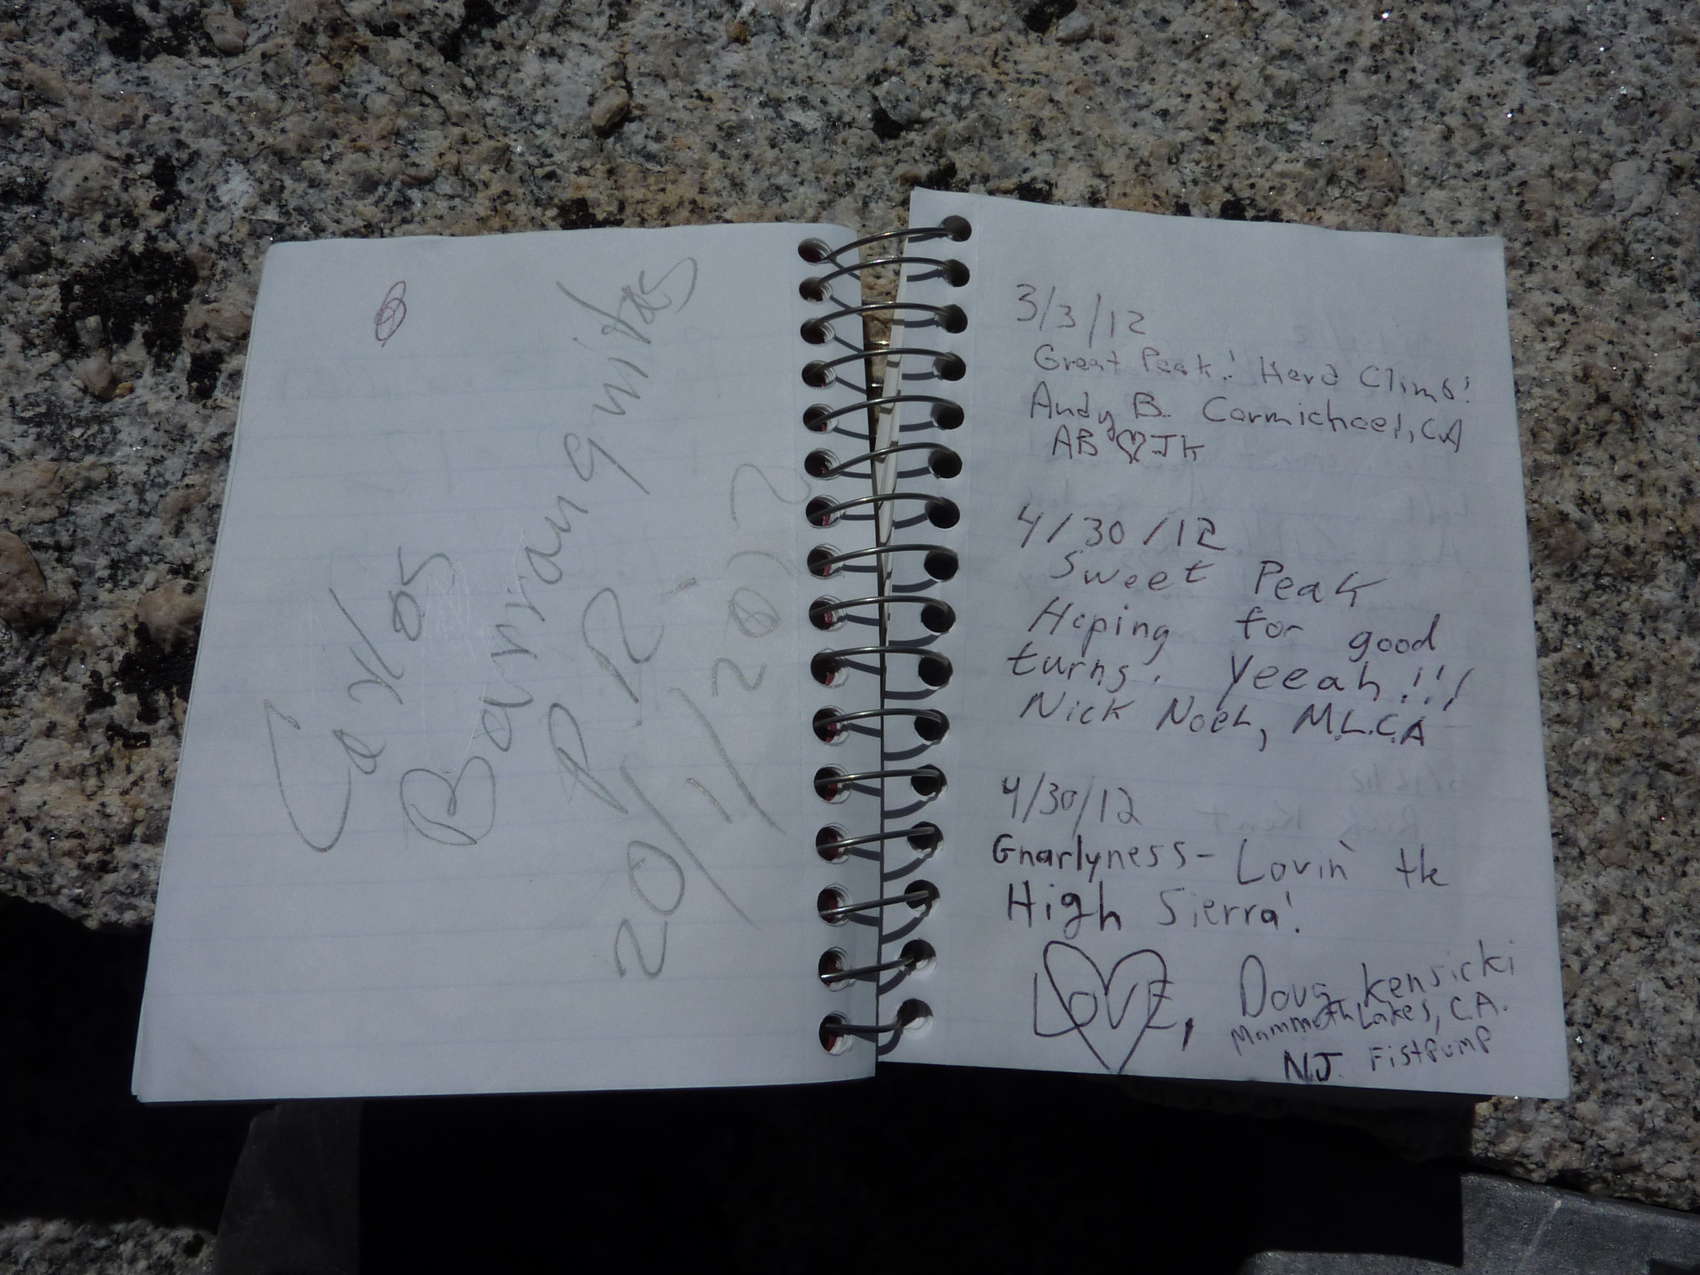 Carlos
Barranquitas
P.R.
20/1/2012
3/3/12
Great Peak! Hard Climb!
Andy B. Carmichael, CA
AB ♡ JK
4/30/12
Sweet Peak
Hoping for good
turns. Yeeah!!!
Nick Noel, M.L.CA
4/30/12
Gnarlyness - Lovin' the
High Sierra!
LOVE, Doug Kensicki
Mammoth Lakes, CA.
NJ Fistpump